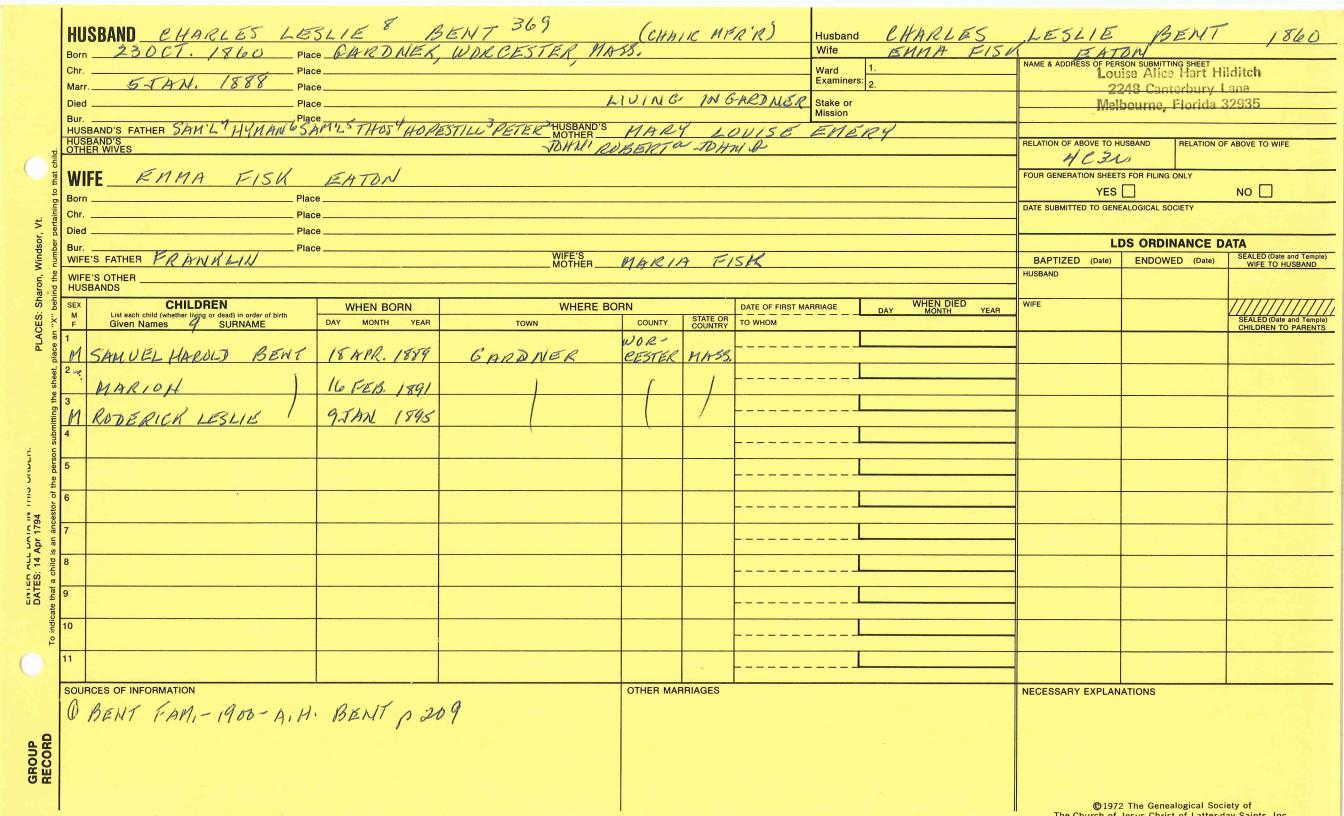 HUSBAND CHARLES LESLIE 8 BENT 369 (CHAIR MFR'R)
Born 23 OCT. 1860 Place GARDNER, WORCESTER, MASS.
Chr. Place
Marr. 5 JAN. 1888 Place
Died Place LIVING IN GARDNER
Bur. Place
HUSBAND'S FATHER SAM'L 7 HYMAN 6 SAM'L 5 THOS 4 HOPESTILL 3 PETER 2 HUSBAND'S MOTHER MARY LOUISE EMERY
HUSBAND'S OTHER WIVES JOHN 1 ROBERT a JOHN b
Husband CHARLES LESLIE BENT 1860
Wife EMMA FISK EATON
Ward Examiners: 1.
2.
Stake or Mission
NAME & ADDRESS OF PERSON SUBMITTING SHEET
Louise Alice Hart Hilditch
2248 Canterbury Lane
Melbourne, Florida 32935
RELATION OF ABOVE TO HUSBAND RELATION OF ABOVE TO WIFE
4C3R
FOUR GENERATION SHEETS FOR FILING ONLY
YES NO
DATE SUBMITTED TO GENEALOGICAL SOCIETY
WIFE EMMA FISK EATON
Born Place
Chr. Place
Died Place
Bur. Place
WIFE'S FATHER FRANKLIN WIFE'S MOTHER MARIA FISK
WIFE'S OTHER HUSBANDS
LDS ORDINANCE DATA
BAPTIZED (Date) ENDOWED (Date) SEALED (Date and Temple) WIFE TO HUSBAND
HUSBAND
WIFE
SEALED (Date and Temple) CHILDREN TO PARENTS
SEX M F
CHILDREN
List each child (whether living or dead) in order of birth
Given Names 9 SURNAME
WHEN BORN
DAY MONTH YEAR
WHERE BORN
TOWN COUNTY STATE OR COUNTRY
DATE OF FIRST MARRIAGE
TO WHOM
WHEN DIED
DAY MONTH YEAR
1 M SAMUEL HAROLD BENT 18 APR. 1889 GARDNER WORCESTER MASS.
2 MARION 16 FEB. 1891
3 M RODERICK LESLIE 9 JAN 1895
4
5
6
7
8
9
10
11
SOURCES OF INFORMATION
① BENT FAM.-1900-A.H. BENT p 209
OTHER MARRIAGES
NECESSARY EXPLANATIONS
©1972 The Genealogical Society of
The Church of Jesus Christ of Latter-day Saints, Inc.
PLACES: Sharon, Windsor, Vt.
ENTER ALL DATA IN THIS ORDER:
DATES: 14 Apr 1794
To indicate that a child is an ancestor of the person submitting the sheet, place an "X" behind the number pertaining to that child.
GROUP RECORD